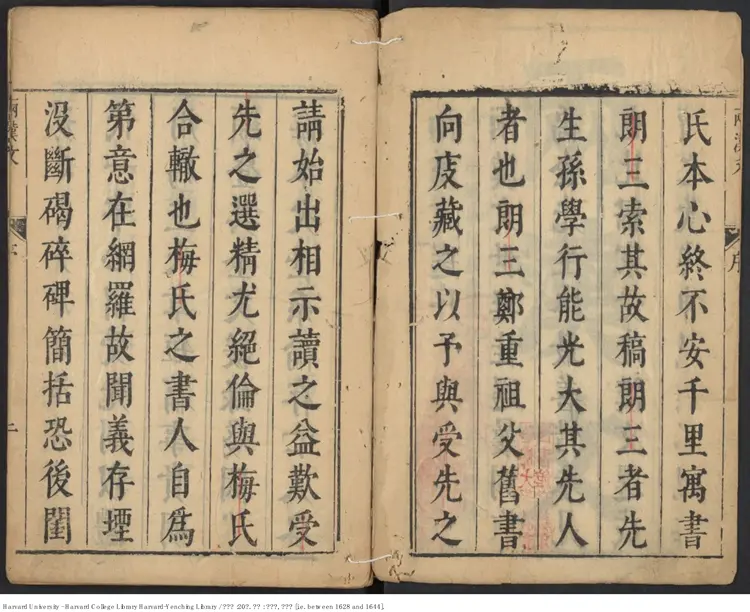 氏本心終不安千里寓書
朗三索其故稿朗三者先
生孫學行能光大其先人
者也朗三鄭重祖父舊書
向庋藏之以予與受先之
請始出相示讀之益歎受
先之選精尤絕倫與梅氏
合轍也梅氏之書人自為
第意在網羅故聞義存堙
沒斷碣碎碑簡括恐後閨
序
二
Harvard University - Harvard College Library Harvard-Yenching Library / ??? :20?. ?? : ???, ??? [i.e. between 1628 and 1644].